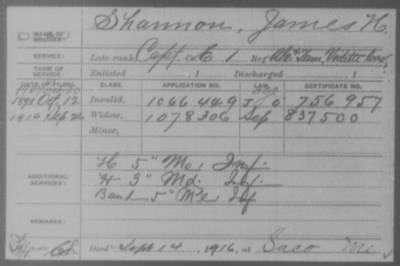 NAME OF SOLDIER: Shannon, James H.
SERVICE: Late rank Capt. Co E 1 Reg Ala & Tenn, Vidette Cav
TERM OF SERVICE: Enlisted , 1 Discharged , 1
DATE OF FILING. CLASS. APPLICATION NO. LAW. CERTIFICATE NO.
1891 Oct 12 Invalid, 1066449 J O 756,957
1916 Sep 26 Widow, 1078306 Sep 837500
Minor,
ADDITIONAL SERVICES: H 5" Me. Inf.
H 3" Md. Inf.
Band 5" Me Inf
REMARKS:
Died Sept 14, 1916, at Saco Me